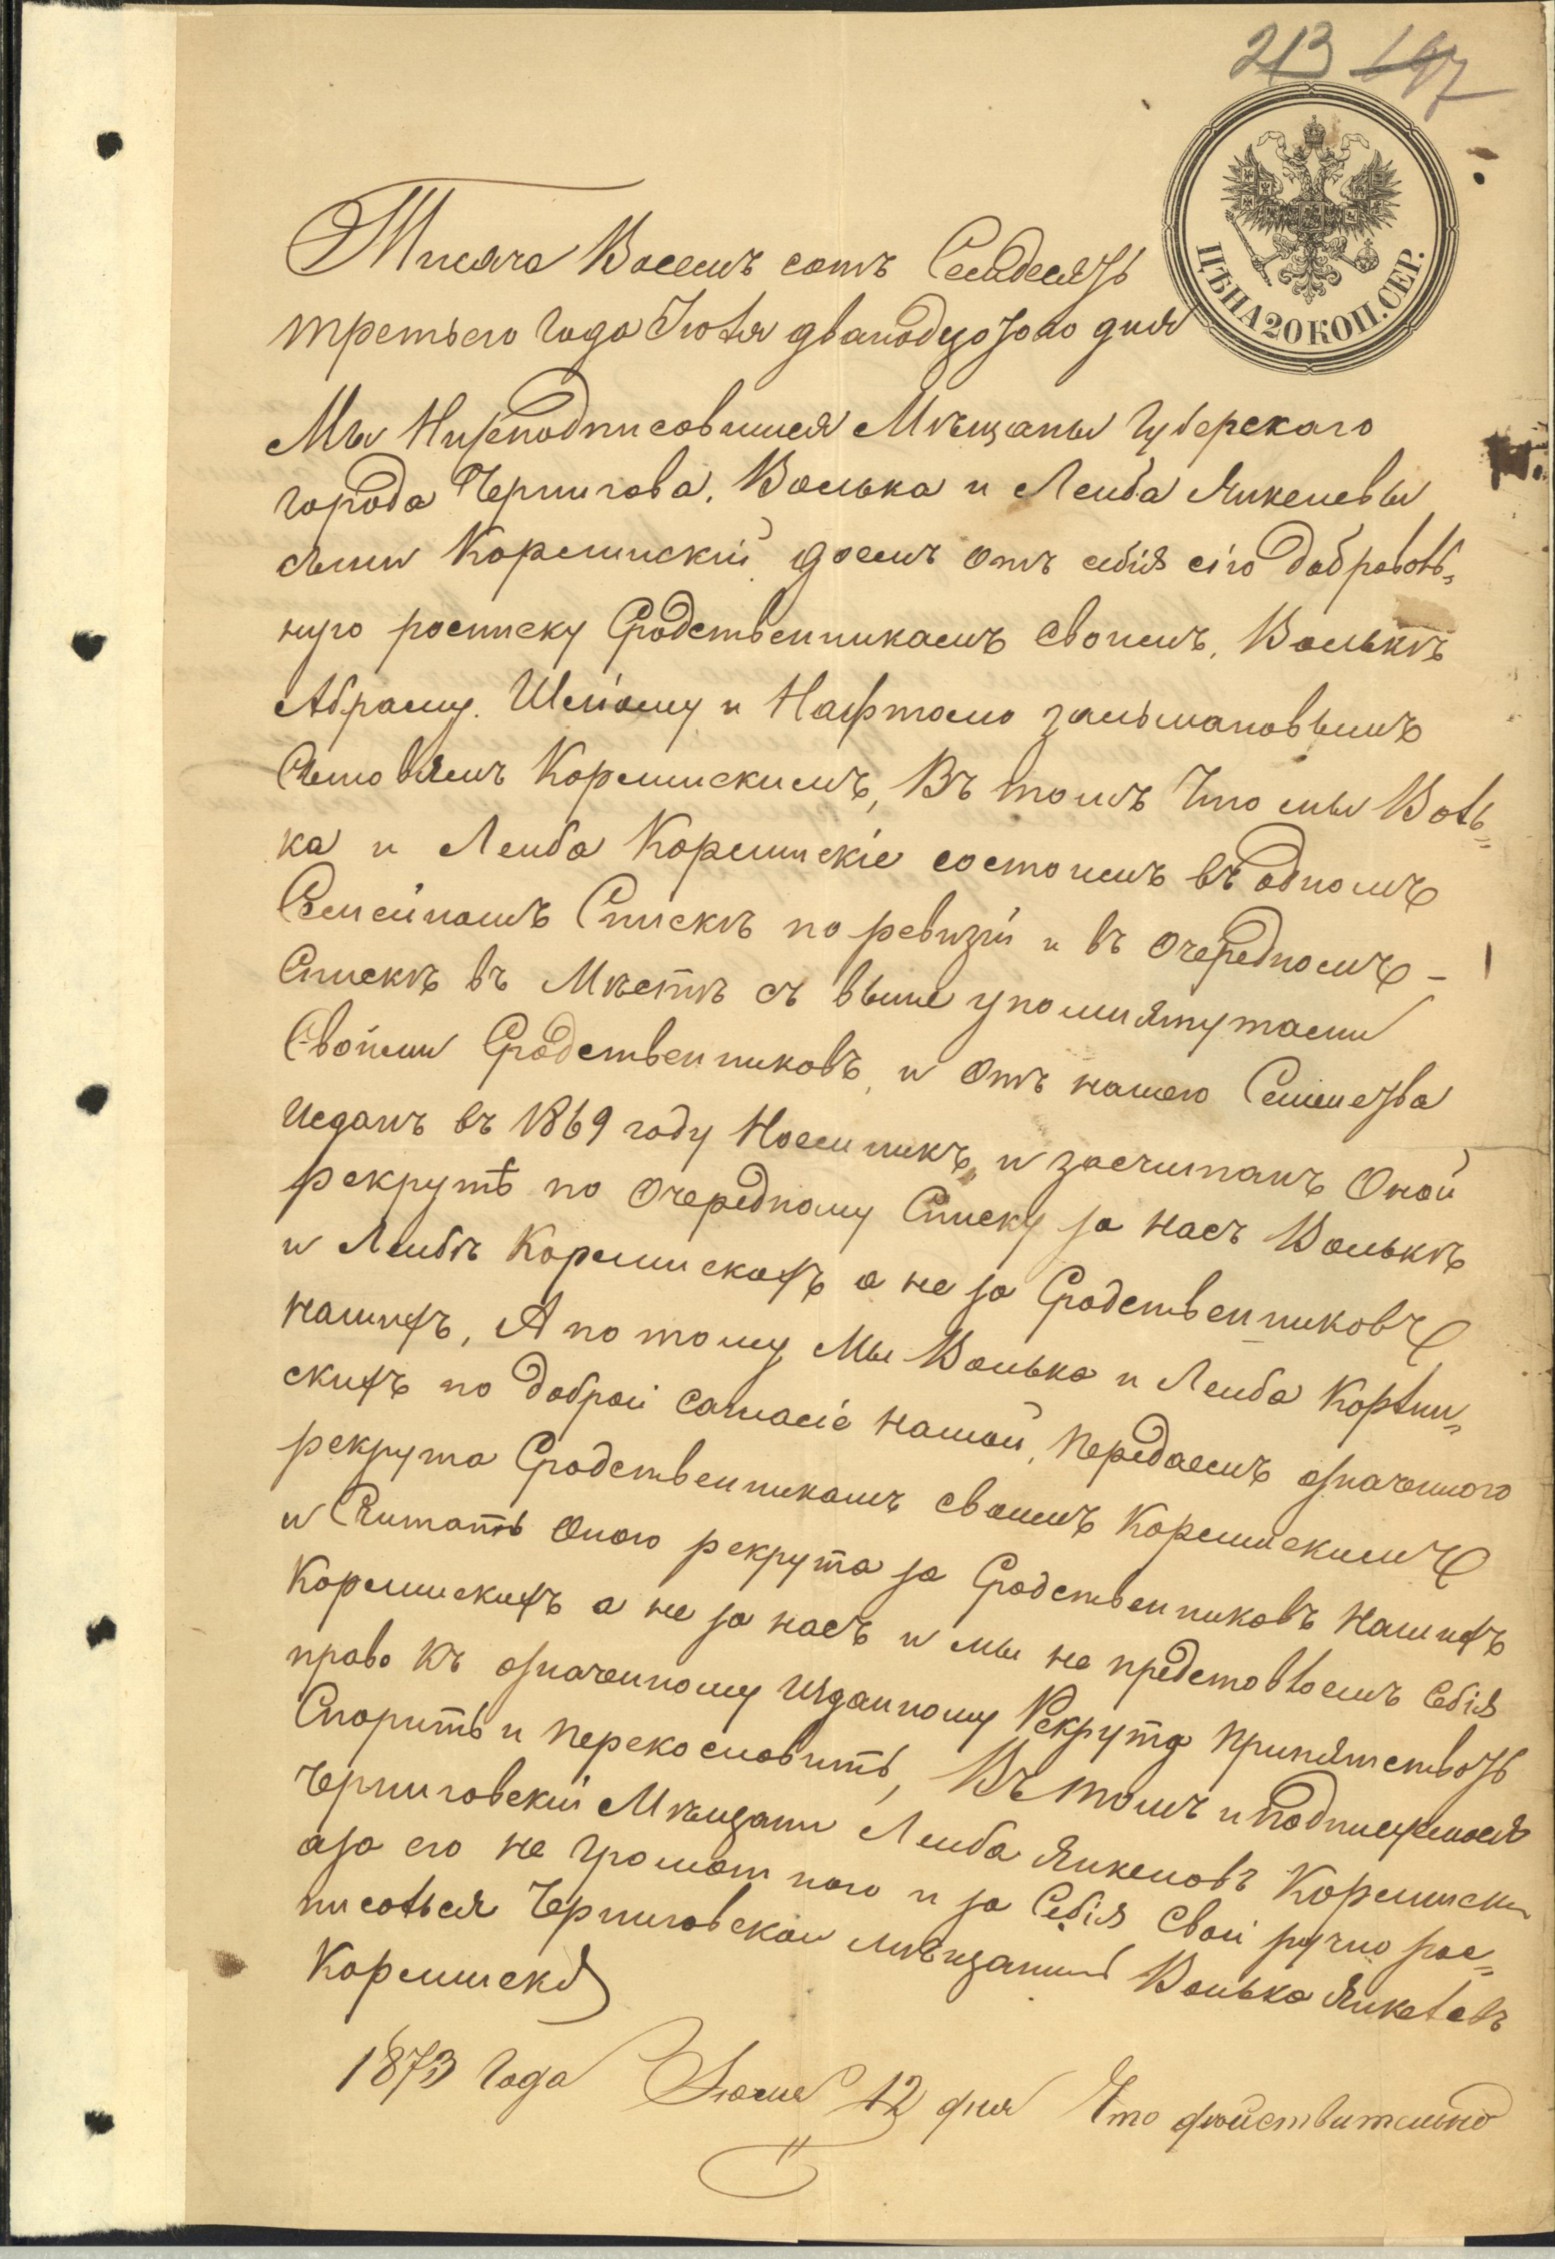 213 197
ЦѢНА 20 КОП. СЕР.
Тисяча Восемъ сотъ Семдесятъ
третьего Года Июля дванадцатого дня
Мы Нижеподписовшися Мѣщаны Губерскаго
города Чернигова, Волька и Лейба Янкелевы
сыны Корелинскiй даемъ отъ себiя сiю добраволь=
ную росписку Сродственникамъ своимъ, Волькѣ
Абраму. Шлiому и Нафтолю Зальмановымъ
Сыновямъ Корелинскимъ, Въ томъ Что мы Воль=
ка и Лейба Корелинскiе состоимъ въ одномъ
Семейномъ Спискѣ по ревизiи и въ очередномъ -
Спискѣ въ Мѣстѣ съ выше упомянутами
Своими Сродственниковъ, и отъ нашего Семейства
Изданъ въ 1869 году Наемникъ, и засчитанъ Оной
рекрутъ по Очередному Списку за насъ Волькѣ
и Лейбѣ Корелинскихъ а не за Сродственниковъ
нашихъ, А по тому Мы Волька и Лейба Корлин=
скихъ по доброй согласiе нашой, Передаемъ означеного
рекрута Сродственникамъ своимъ Корелинскимъ
и Считать Оного рекрута за Сродственниковъ нашихъ
Корелинскихъ а не за насъ и мы не предстовляемъ Себiя
право къ означенному Изданному Рекрута припятствать
Спорить и перекословить, Въ томъ и подписуемося
Черниговскiй Мѣщанин Лейба Янкеловъ Корелински
аза его не громотного и за Себiя Свой ручно рос=
писолься Черниговской мѣщанинъ Волька Янкелевъ
Корелинскiй
1873 Года Июля 12 дня Что дѣйствительно